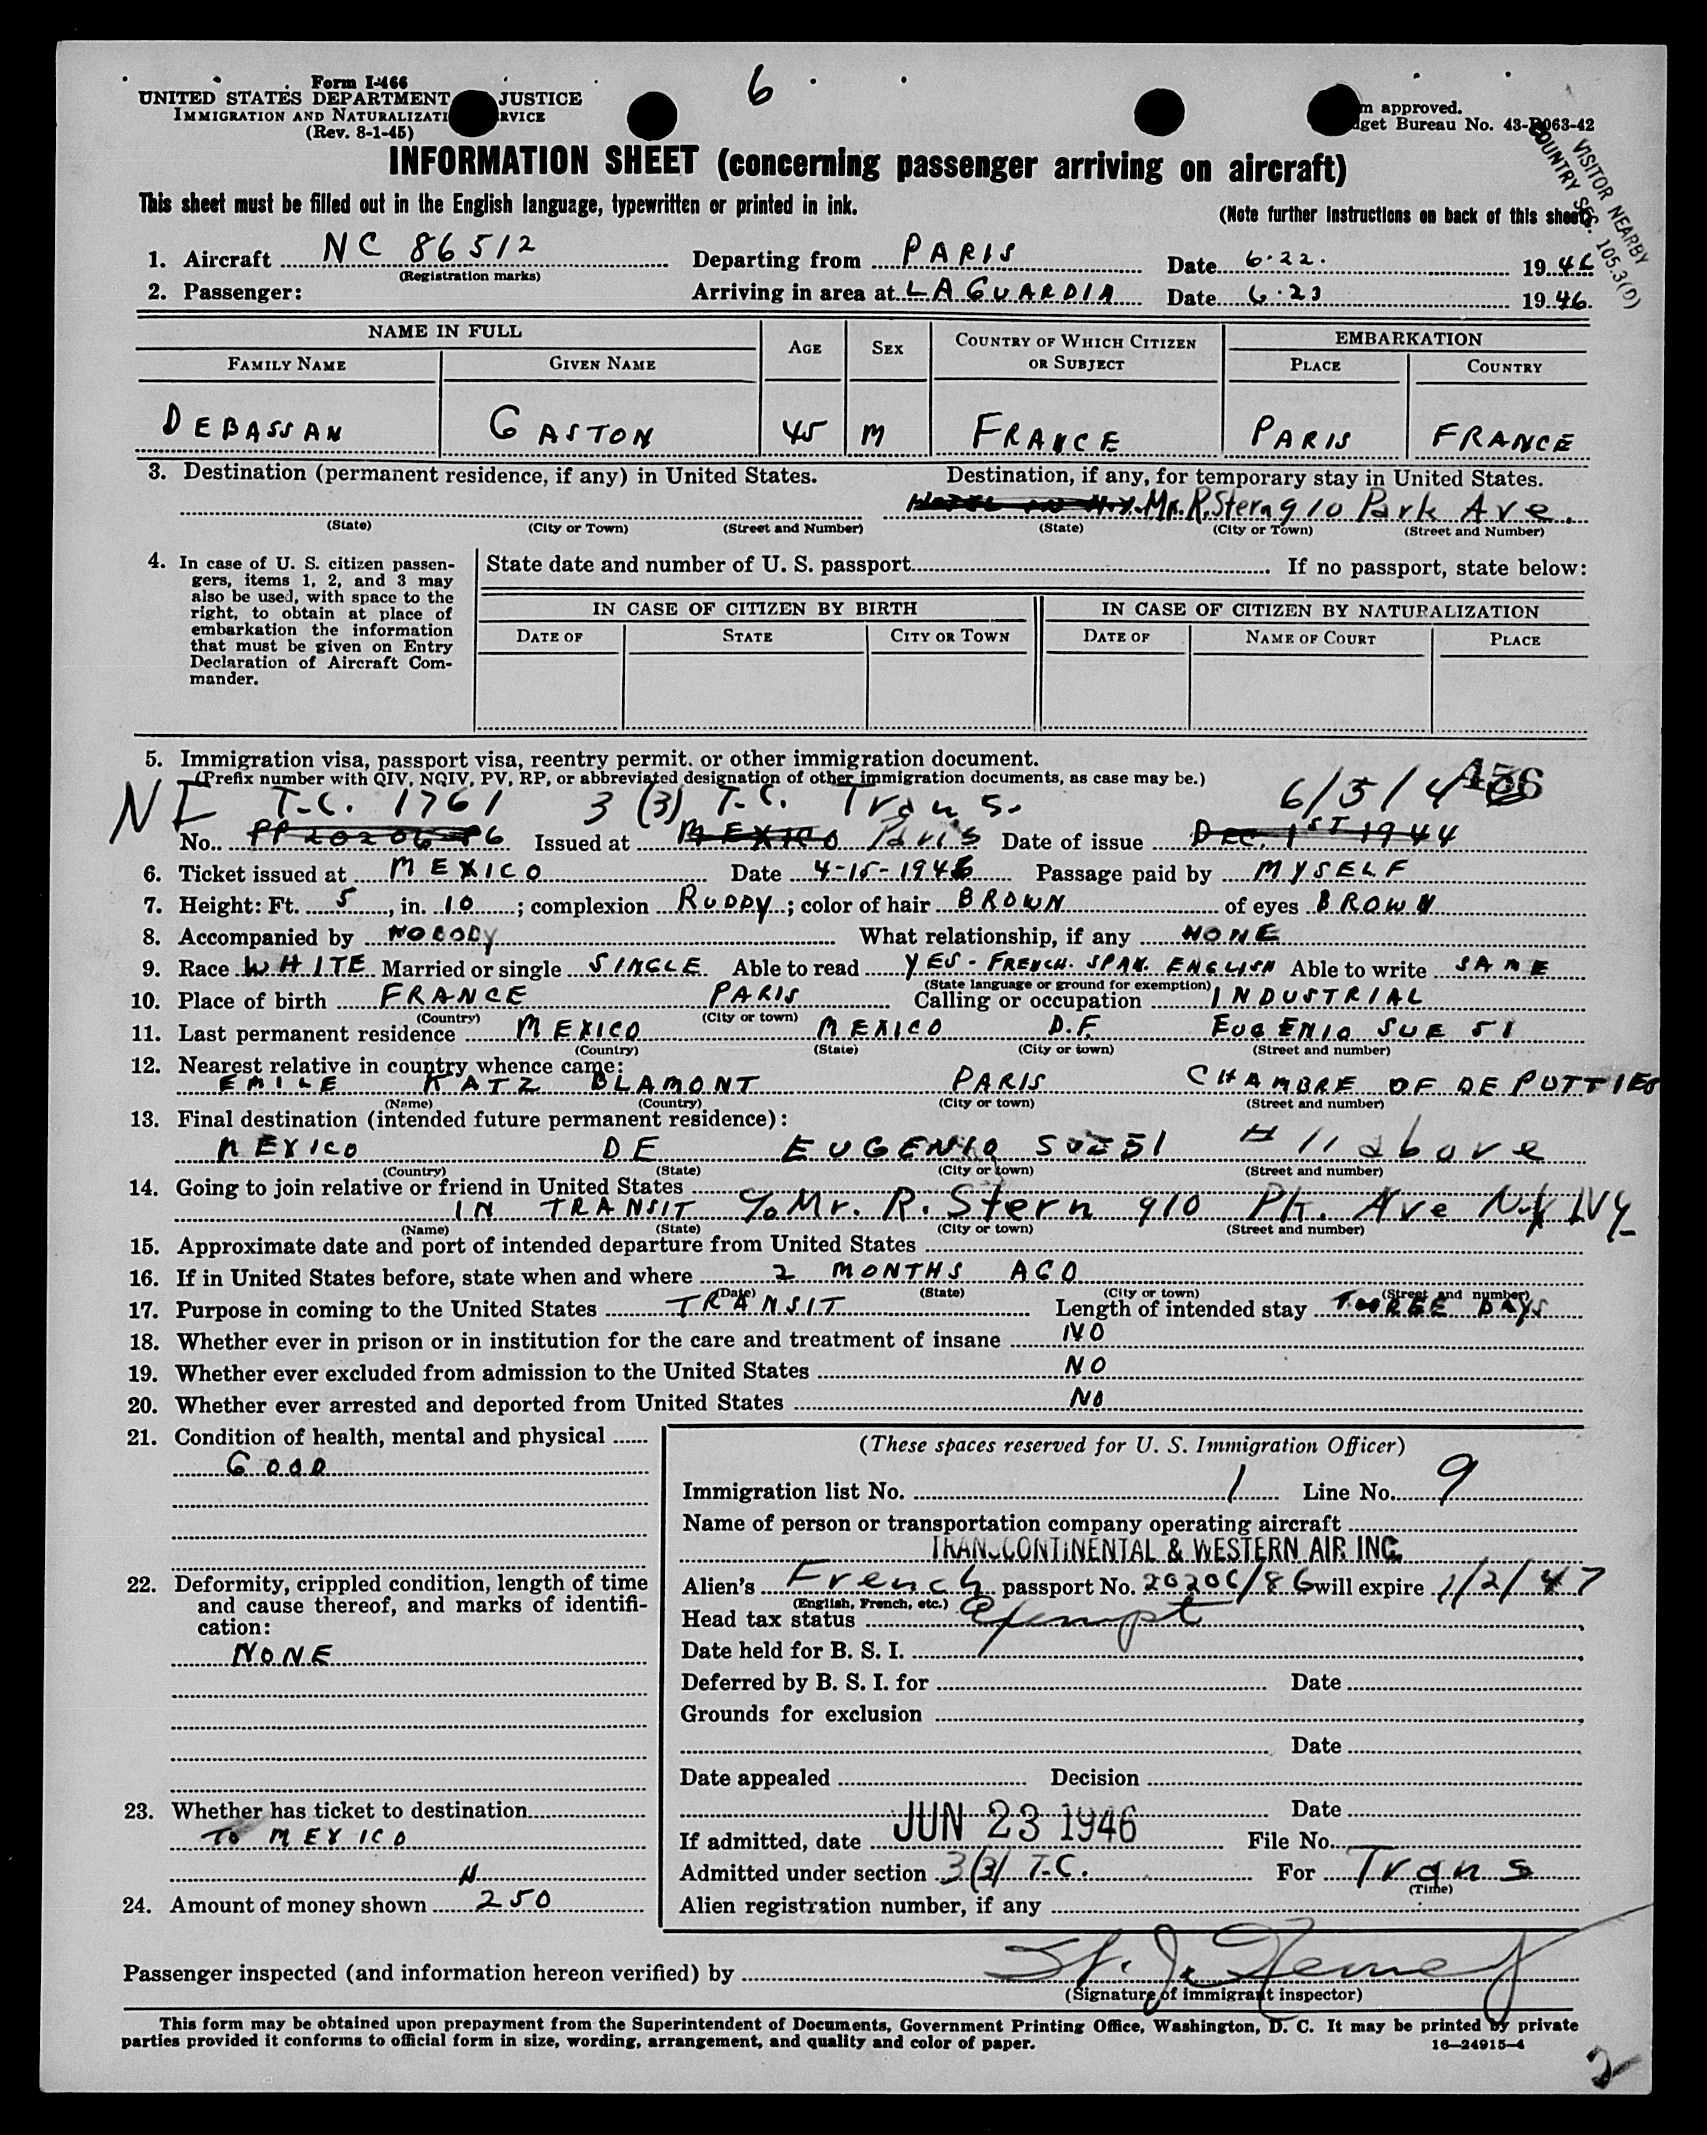 Form I-466
UNITED STATES DEPARTMENT JUSTICE
IMMIGRATION AND NATURALIZATI RVICE
(Rev. 8-1-45)
6
m approved.
get Bureau No. 43-R063-42
VISITOR NEARBY
COUNTRY SEC. 105.3(D)
INFORMATION SHEET (concerning passenger arriving on aircraft)
This sheet must be filled out in the English language, typewritten or printed in ink.
(Note further instructions on back of this sheet)
1. Aircraft NC 86512 Departing from PARIS Date 6.22. 1946
(Registration marks)
2. Passenger: Arriving in area at LA GUARDIA Date 6.23 1946.
NAME IN FULL AGE SEX COUNTRY OF WHICH CITIZEN OR SUBJECT EMBARKATION
FAMILY NAME GIVEN NAME PLACE COUNTRY
DEBASSAN GASTON 45 M FRANCE PARIS FRANCE
3. Destination (permanent residence, if any) in United States. Destination, if any, for temporary stay in United States.
HOTEL IN N.Y. Mr. R. Stern 910 Park Ave.
(State) (City or Town) (Street and Number) (State) (City or Town) (Street and Number)
4. In case of U. S. citizen passen-
gers, items 1, 2, and 3 may
also be used, with space to the
right, to obtain at place of
embarkation the information
that must be given on Entry
Declaration of Aircraft Com-
mander.
State date and number of U. S. passport If no passport, state below:
IN CASE OF CITIZEN BY BIRTH IN CASE OF CITIZEN BY NATURALIZATION
DATE OF STATE CITY OR TOWN DATE OF NAME OF COURT PLACE
5. Immigration visa, passport visa, reentry permit, or other immigration document.
(Prefix number with QIV, NQIV, PV, RP, or abbreviated designation of other immigration documents, as case may be.)
T-C. 1761 3 (3) T-C. Trans. 6/5/46
No. PP 20206 86 Issued at MEXICO Paris Date of issue DEC. 1ST 1944
6. Ticket issued at MEXICO Date 4-15-1946 Passage paid by MYSELF
7. Height: Ft. 5, in. 10; complexion RUDDY; color of hair BROWN of eyes BROWN
8. Accompanied by NOBODY What relationship, if any NONE
9. Race WHITE Married or single SINGLE Able to read YES - FRENCH. SPAN. ENGLISH Able to write SAME
(State language or ground for exemption)
10. Place of birth FRANCE PARIS Calling or occupation INDUSTRIAL
(Country) (City or town)
11. Last permanent residence MEXICO MEXICO D.F. EUGENIO SUE 51
(Country) (State) (City or town) (Street and number)
12. Nearest relative in country whence came:
EMILE KATZ BLAMONT PARIS CHAMBRE OF DEPUTTIES
(Name) (Country) (City or town) (Street and number)
13. Final destination (intended future permanent residence):
MEXICO DF EUGENIO SUE 51 # 11 above
(Country) (State) (City or town) (Street and number)
14. Going to join relative or friend in United States
IN TRANSIT c/o Mr. R. Stern 910 Pk. Ave N.Y. NY
(Name) (State) (City or town) (Street and number)
15. Approximate date and port of intended departure from United States
16. If in United States before, state when and where 2 MONTHS AGO
(Date) (State) (City or town) (Street and number)
17. Purpose in coming to the United States TRANSIT Length of intended stay THREE DAYS
18. Whether ever in prison or in institution for the care and treatment of insane NO
19. Whether ever excluded from admission to the United States NO
20. Whether ever arrested and deported from United States NO
21. Condition of health, mental and physical
GOOD
22. Deformity, crippled condition, length of time
and cause thereof, and marks of identifi-
cation:
NONE
23. Whether has ticket to destination
TO MEXICO
24. Amount of money shown 250
(These spaces reserved for U. S. Immigration Officer)
Immigration list No. 1 Line No. 9
Name of person or transportation company operating aircraft
TRANSCONTINENTAL & WESTERN AIR INC.
Alien's French passport No. 20206/86 will expire 1/2/47
(English, French, etc.)
Head tax status exempt
Date held for B. S. I.
Deferred by B. S. I. for Date
Grounds for exclusion
Date
Date appealed Decision
Date
If admitted, date JUN 23 1946 File No.
Admitted under section 3(3) T-C. For Trans
(Time)
Alien registration number, if any
Passenger inspected (and information hereon verified) by
(Signature of immigrant inspector)
This form may be obtained upon prepayment from the Superintendent of Documents, Government Printing Office, Washington, D. C. It may be printed by private
parties provided it conforms to official form in size, wording, arrangement, and quality and color of paper. 16—24915-4
2